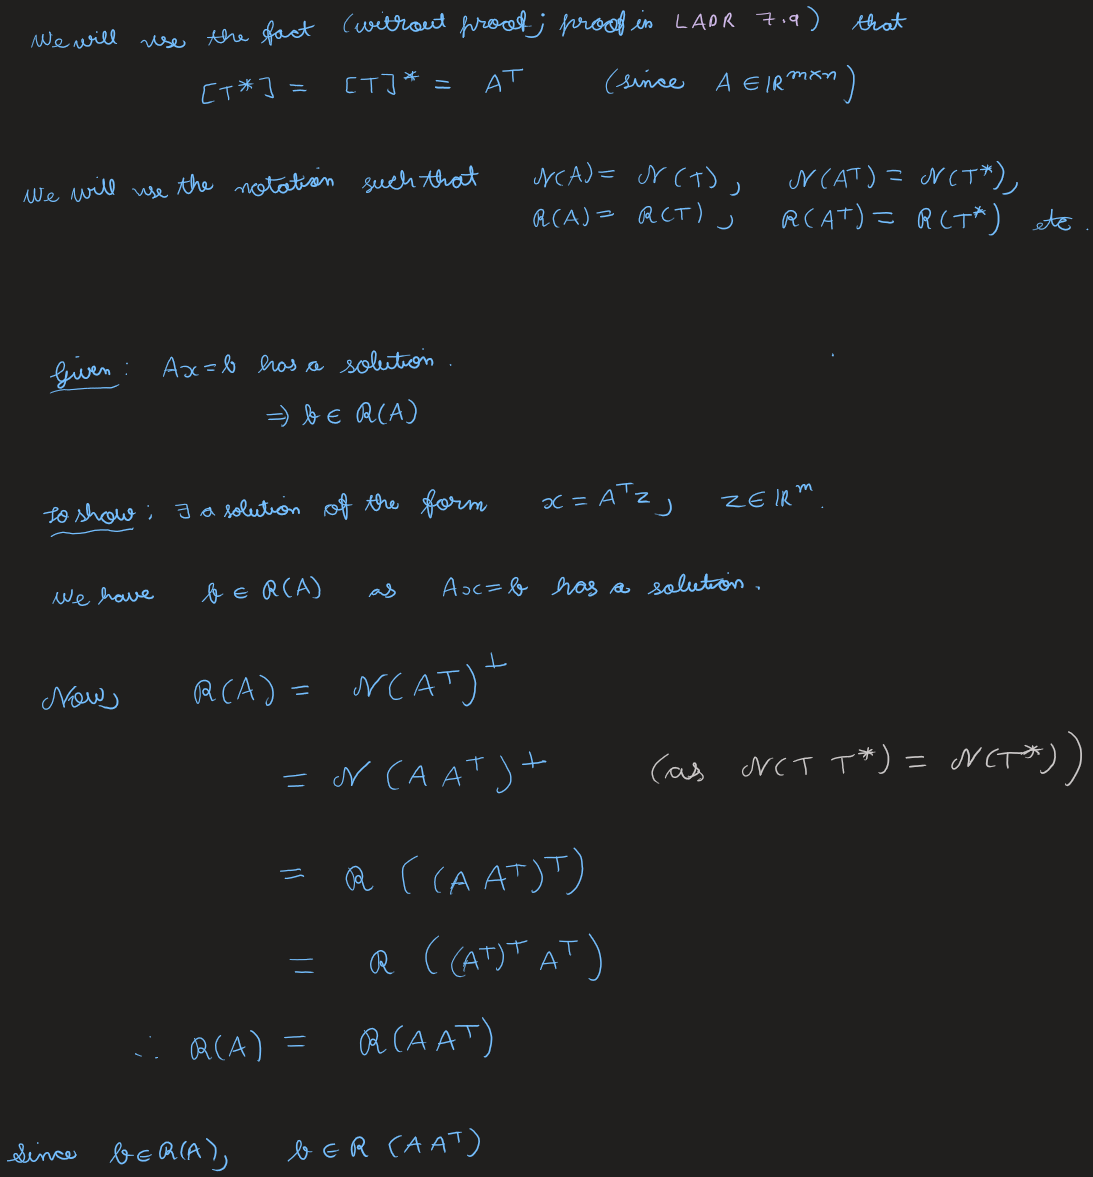 We will use the fact (without proof; proof in LADR 7.9) that
[T*] = [T]* = Aᵀ (since A ∈ ℝᵐˣⁿ)
We will use the notation such that N(A) = N(T), N(Aᵀ) = N(T*),
R(A) = R(T), R(Aᵀ) = R(T*) etc.
Given: Ax=b has a solution.
⇒ b ∈ R(A)
To show: ∃ a solution of the form x = Aᵀz, z ∈ ℝᵐ.
We have b ∈ R(A) as Ax=b has a solution.
Now, R(A) = N(Aᵀ)⊥
= N(A Aᵀ)⊥ (as N(T T*) = N(T*))
= R((A Aᵀ)ᵀ)
= R((Aᵀ)ᵀ Aᵀ)
∴ R(A) = R(A Aᵀ)
Since b ∈ R(A), b ∈ R(A Aᵀ)